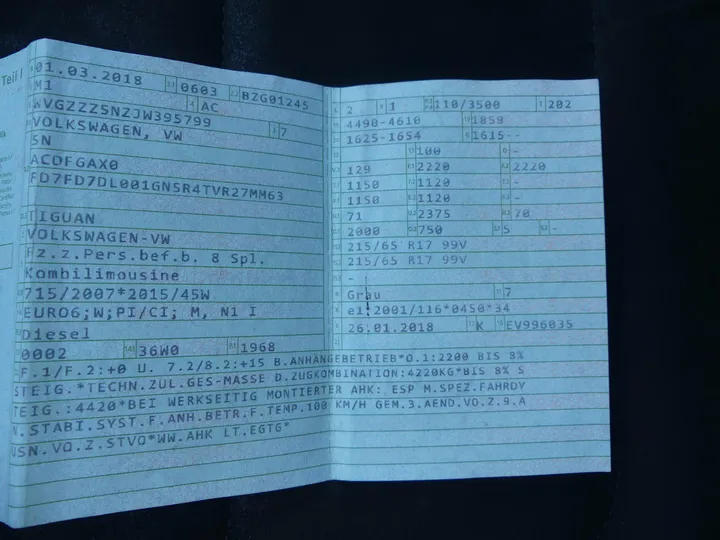 Teil I
01.03.2018 0603 BZG01245
M1 AC
WVGZZZ5NZJW395799 7
VOLKSWAGEN, VW
5N
ACDFGAX0
FD7FD7DL001GNSR4TVR27MM63
TIGUAN
VOLKSWAGEN-VW
Fz.z.Pers.bef.b. 8 Spl.
Kombilimousine
715/2007*2015/45W
EURO6;W;PI/CI; M, N1 I
Diesel
0002 36W0 1968
F.1/F.2:+0 U. 7.2/8.2:+15 B.ANHÄNGEBETRIEB*O.1:2200 BIS 8%
STEIG.*TECHN.ZUL.GES-MASSE D.ZUGKOMBINATION:4220KG*BIS 8% S
TEIG.:4420*BEI WERKSEITIG MONTIERTER AHK: ESP M.SPEZ.FAHRDY
N.STABI.SYST.F.ANH.BETR.F.TEMP.100 KM/H GEM.3.AEND.VO.Z.9.A
USN.VO.Z.STVO*WW.AHK LT.EGTG*
2 1 110/3500 202
4490-4610 1859
1625-1654 1615--
100 -
129 2220 2220
1150 1120 -
1150 1120 -
71 2375 70
2000 750 S -
215/65 R17 99V
215/65 R17 99V
-
Grau 7
e1*2001/116*0450*34
26.01.2018 K EV996035